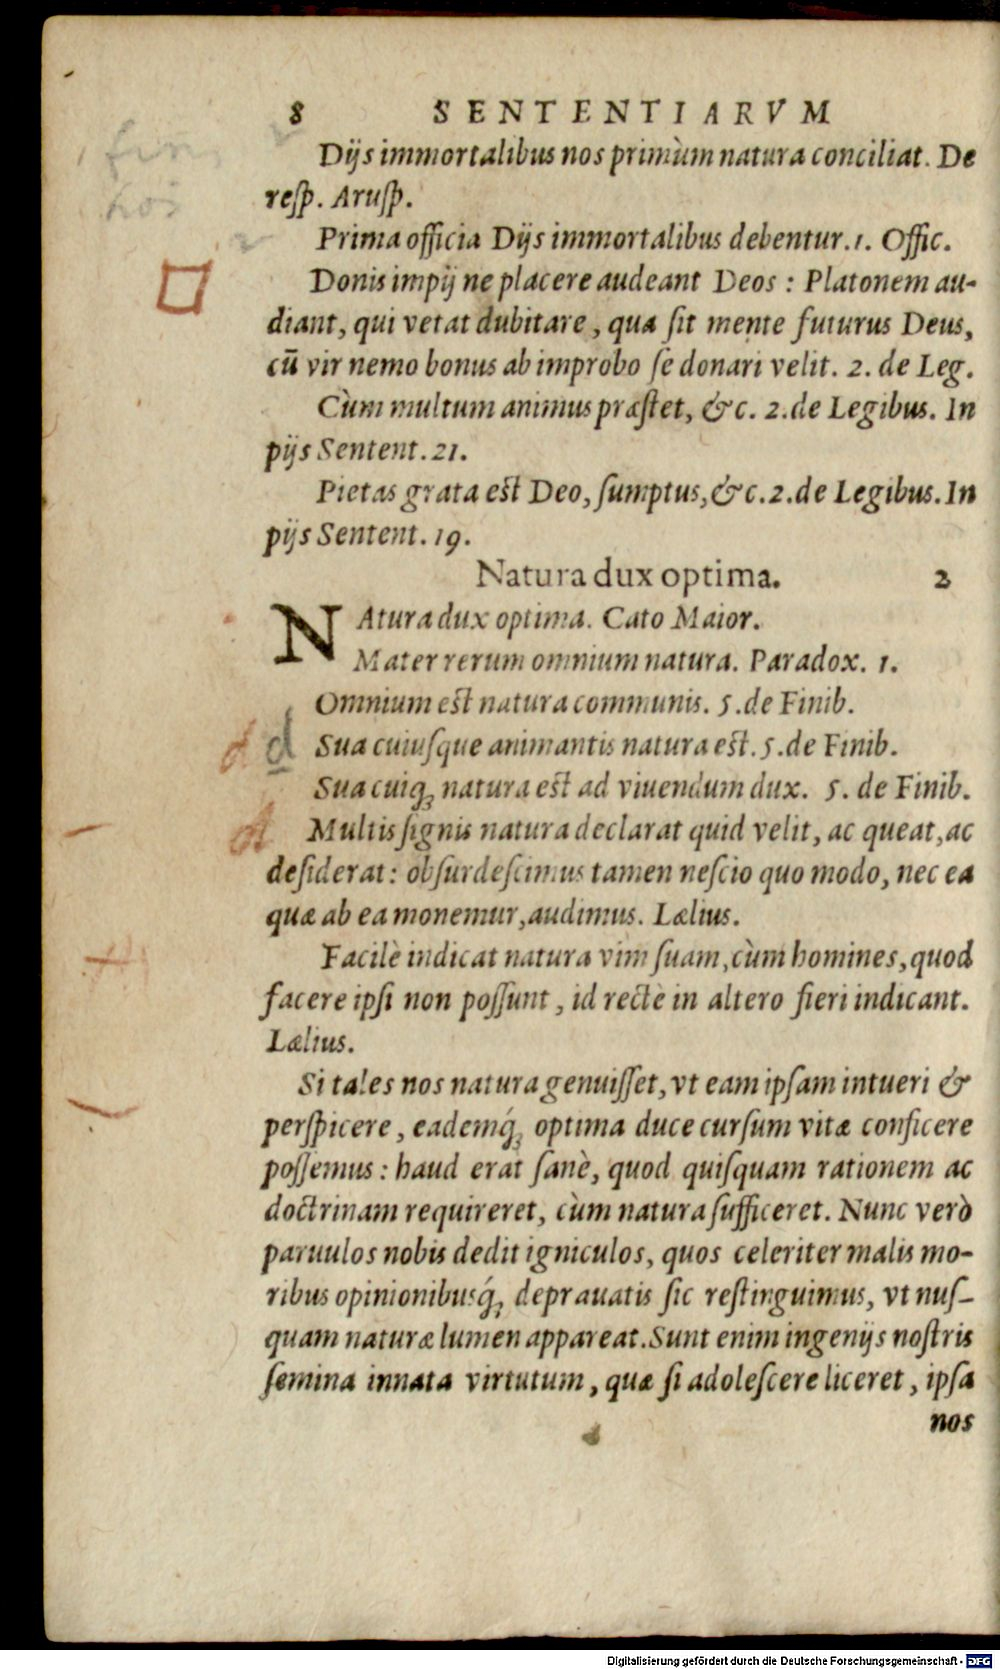 8 SENTENTIARVM
Dijs immortalibus nos primùm natura conciliat. De
resp. Arusp.
Prima officia Dijs immortalibus debentur. 1. Offic.
Donis impij ne placere audeant Deos : Platonem au-
diant, qui vetat dubitare, qua sit mente futurus Deus,
cū vir nemo bonus ab improbo se donari velit. 2. de Leg.
Cùm multum animus præstet, &c. 2. de Legibus. In
pijs Sentent. 21.
Pietas grata est Deo, sumptus, &c. 2. de Legibus. In
pijs Sentent. 19.
Natura dux optima. 2
NAtura dux optima. Cato Maior.
Mater rerum omnium natura. Paradox. 1.
Omnium est natura communis. 5. de Finib.
d d Sua cuiusque animantis natura est. 5. de Finib.
Sua cuiq; natura est ad viuendum dux. 5. de Finib.
Multis signis natura declarat quid velit, ac queat, ac
desiderat: obsurdescimus tamen nescio quo modo, nec ea
quæ ab ea monemur, audimus. Lælius.
Facilè indicat natura vim suam, cùm homines, quod
facere ipsi non possunt, id rectè in altero fieri indicant.
Lælius.
Si tales nos natura genuisset, vt eam ipsam intueri &
perspicere, eademq́; optima duce cursum vitæ conficere
possemus: haud erat sanè, quod quisquam rationem ac
doctrinam requireret, cùm natura sufficeret. Nunc verò
paruulos nobis dedit igniculos, quos celeriter malis mo-
ribus opinionibusq́; deprauatis sic restinguimus, vt nus-
quam naturæ lumen appareat. Sunt enim ingenijs nostris
semina innata virtutum, quæ si adolescere liceret, ipsa
nos
Digitalisierung gefördert durch die Deutsche Forschungsgemeinschaft - DFG